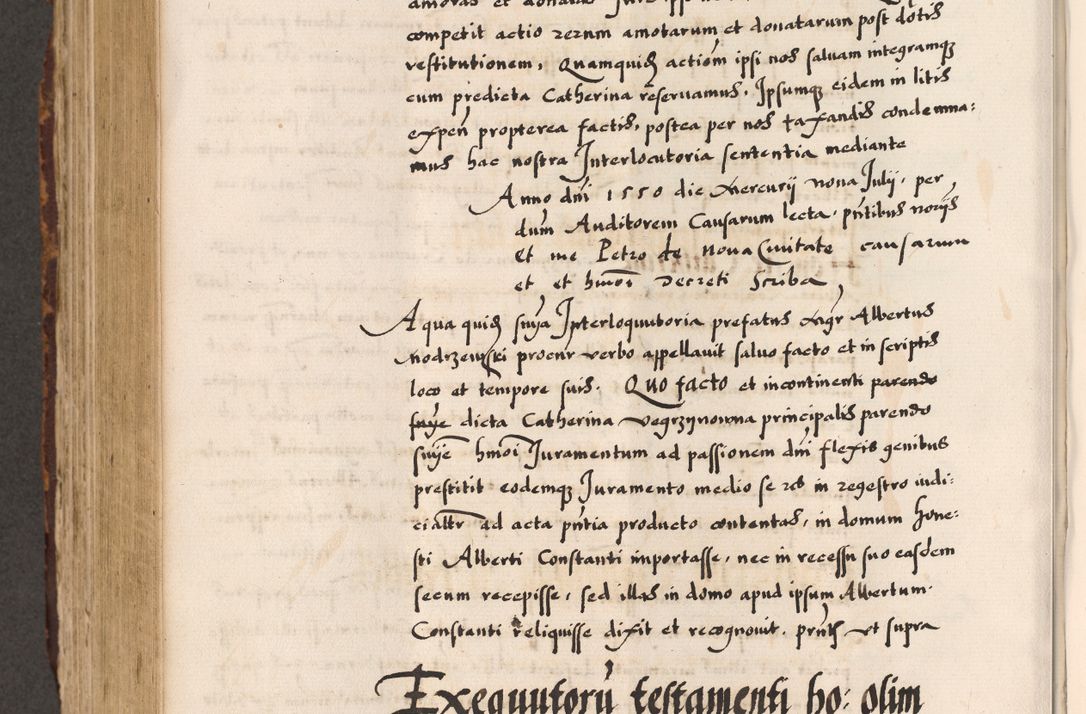 amotas et donatas Jure
competit actio rerum amotarum et donatarum post dotis
restitutionem, Quamquid actiom ipsi nos saluam integramq
cum predicta Catherina reseruamus, Ipsumq eidem in litis
expen propterea factis, postea per nos taxandis condemna:
mus hac nostra Interlocutoria sententia mediante
Anno dni 1550 die Mercurij nona Julij, per
dum Auditorem Causarum lecta, pntibus norijs
et me Petro de Nova Ciuitate causarum
et et hmoi Decreti Scriba
A qua quid snia Interloquutoria prefatus Mgr Albertus
Modrzewski procnr verbo appellauit saluo facto et in scriptis
loco et tempore suis. Quo facto et incontinenti parendo
snie dicta Catherina Vegrzynowna principalis parendo
snie hmoi Juramentum ad passionem dni flexis genibus
prestitit eodemq Juramento medio se res in regestro iudi:
cialtr ad acta pntia producto contentas, in domum hone:
sti Alberti Constanti importasse, nec in recessu suo easdem
secum recepisse, sed illas in domo apud ipsum Albertum
Constanti reliquisse dixit et recognouit. pntb vt supra
Exequutoru testamenti ho: olim